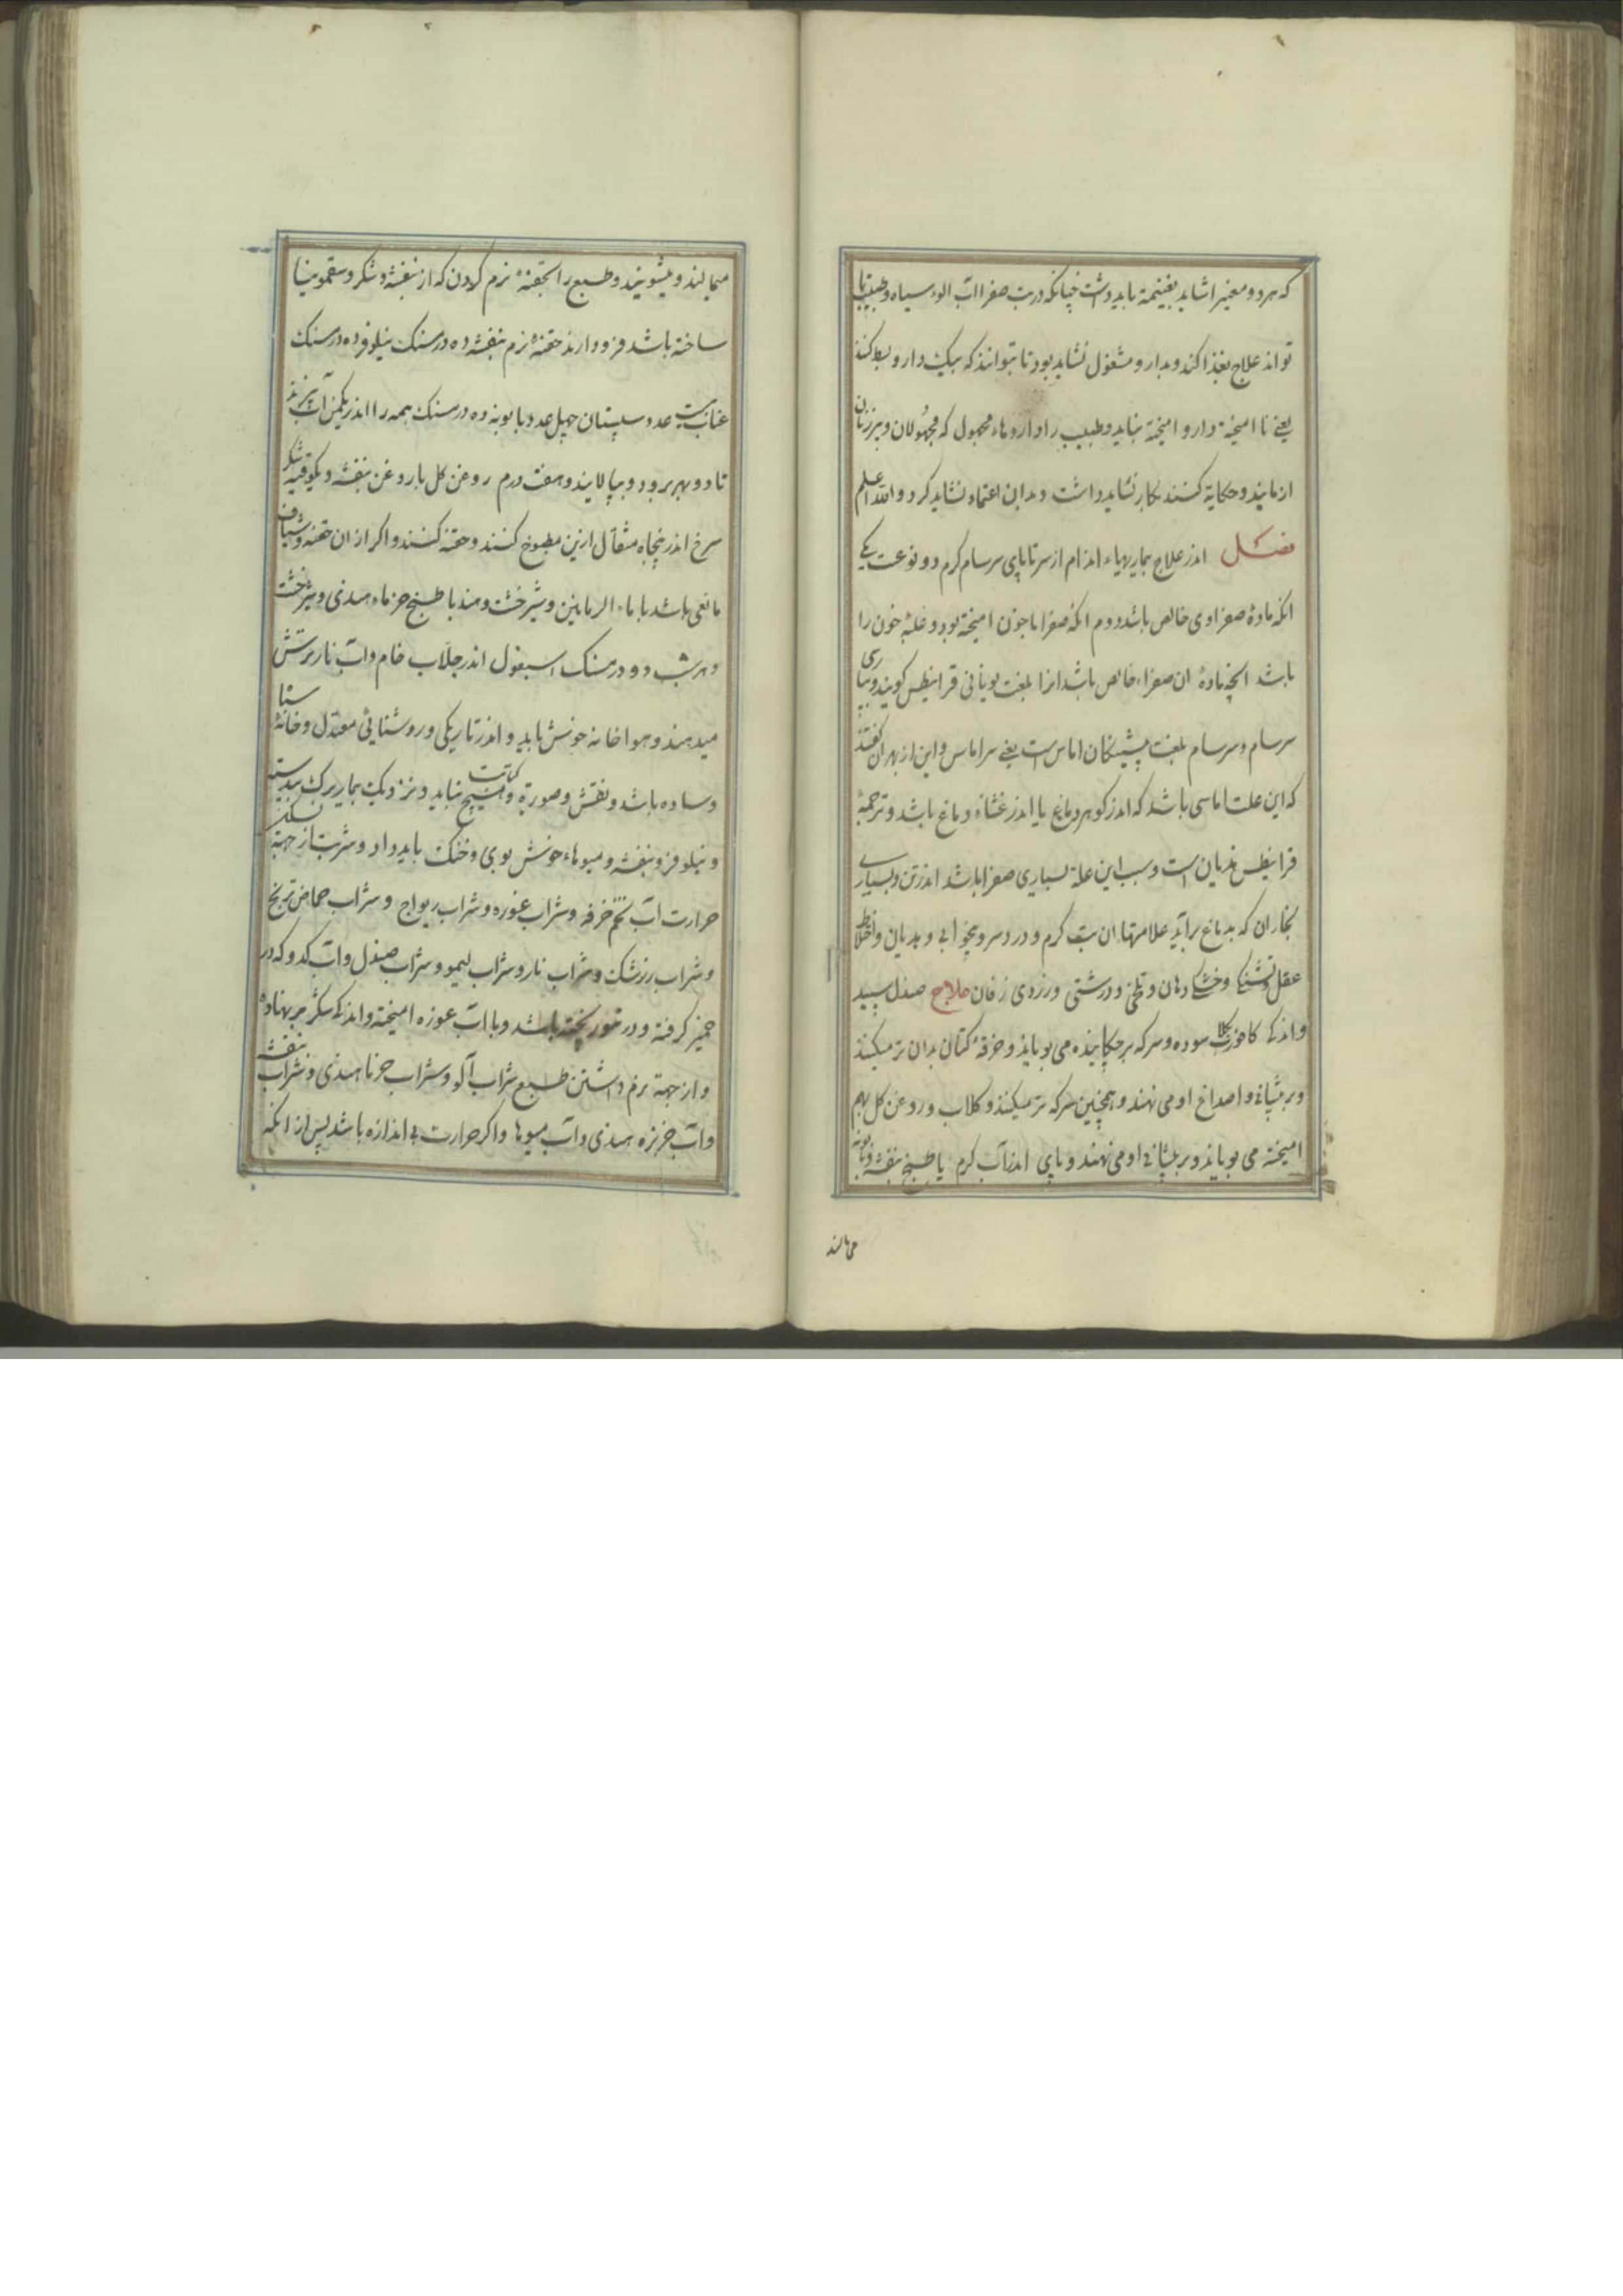 که هر دو معنیرا شاید بغنیمة باید داشت چنانکه در تب صفرا آب الوء سیاه و طبیب تا
تواند علاج بغذا کند و بدارو مشغول نشاید بود تا بتوانند که بیک دارو بسط کند
یعنی نا امیخته دارو امیخته نباید و طبیب را داروهاء مجهول که مجهولان و پیرزنان
ازمایند و حکایة کنند بکار نشاید داشت و بدان اعتماد نشاید کرد و الله اعلم
فصل اندر علاج بماریهاء اندام از سر تا پای سرسام کرم دو نوعست یکی
انکه مادۀ صفراوی خالص باشد دوم انکه صفرا با خون امیخته بود و غلبه خون را
باشد انچه مادۀ ان صفراء خالص باشد انرا بلغت یونانی قرانیطس کویند و بپارسی
سرسام و سرسام بلغت پیشینکان اماس است یعنی سراماس و این از بهر ان گفتند
که این علت اماسی باشد که اندر کوهر دماغ یا اندر غشاء دماغ باشد و ترجمۀ
قرانیطس هذیان است و سبب این علة بسیاری صفرا باشد اندر تن و بسیاری
بخار ان که بدماغ برآید علامتها ان تب کرم و درد سر و بیخوابی و هذیان و اختلاط
عقل و تشنکی و خشکی دهان و تلخی و درشتی و زردی زفان علاج صندل سپید
و اندکی کافور بکلاب سوده و سرکه برچکانیده می بویاند و خرقۀ کتان بدان تر میکنند
و بر پیشانی و اصداغ او می نهند و همچنین سرکه تر میکنند و کلاب و روغن کل بهم
امیخته می بویاند و بر پیشانی او می نهند و پای اندر آب کرم یا طبیخ بنفشه و بابونه
می مالند
میمالند و میشویند و طبع را بحقنۀ نرم کردن که از بنفشه و شکر و سقمونیا
ساخته باشد فرود ارند حقنۀ نرم بنفشه ده درمسنک نیلوفر ده درمسنک
عناب بیست عدد سپستان چهل عدد بابونه ده درمسنک همه را اندر یکمن آب بپزند
تا دو بهر برود و بپالایند و هفت درم روغن کل یا روغن بنفشه و یکوقیه شکر
سرخ اندر پنجاه مثقال ازین مطبوخ کنند و حقنه کنند و اکر از ان حقنه و شیاف
مانعی باشد با ماء الرمانین و شیرخشت و مند با طبیخ خرماء هندی و شیرخشت
و هر شب دو درمسنک اسبغول اندر جلاب خام و آب نار ترش
میدهند و هوا خانه خوش باید و اندر تاریکی و روشنایی معتدل و خانۀ
و ساده باشد و نقش و صورة و نباید و نزدیک بمار برک بید
و نیلوفر و بنفشه و میوهاء خوش بوی و خنک باید داد و شربت از جهة تسکین
حرارت آب تخم خرفه و شراب غوره و شراب ریواج و شراب حماض ترنج
و شراب زرشک و شراب نار و شراب لیمو و شراب صندل و آب کدو که در
خمیر کرفته و در تنور پخته باشد و با آب غوره امیخته و اندکی شکر بر نهاده
و از جهة نرم داشتن طبع شراب آلو و شراب خرما هندی و شراب بنفشه
و آب خربزه هندی و آب میوها و اکر حرارت بی اندازه باشد پس از انکه